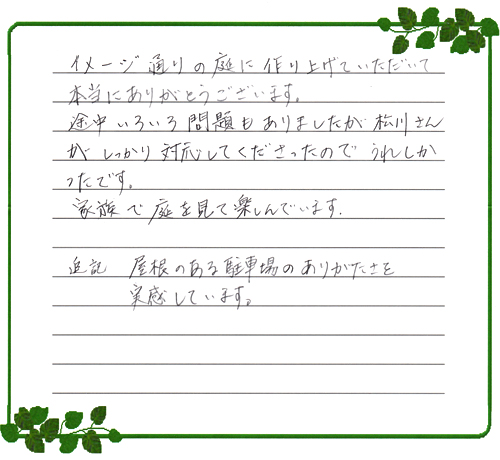 イメージ通りの庭に作り上げていただいて
本当にありがとうございます。
途中いろいろ問題もありましたが松川さん
がしっかり対応してくださったのでうれしか
ったです。
家族で庭を見て楽しんでいます.
追記 屋根のある駐車場のありがたさを
実感しています。